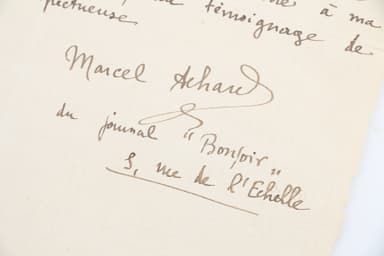 à ma
pectueuse
témoignage de
Marcel Achard
du journal "Bonsoir"
3, rue de l'Echelle